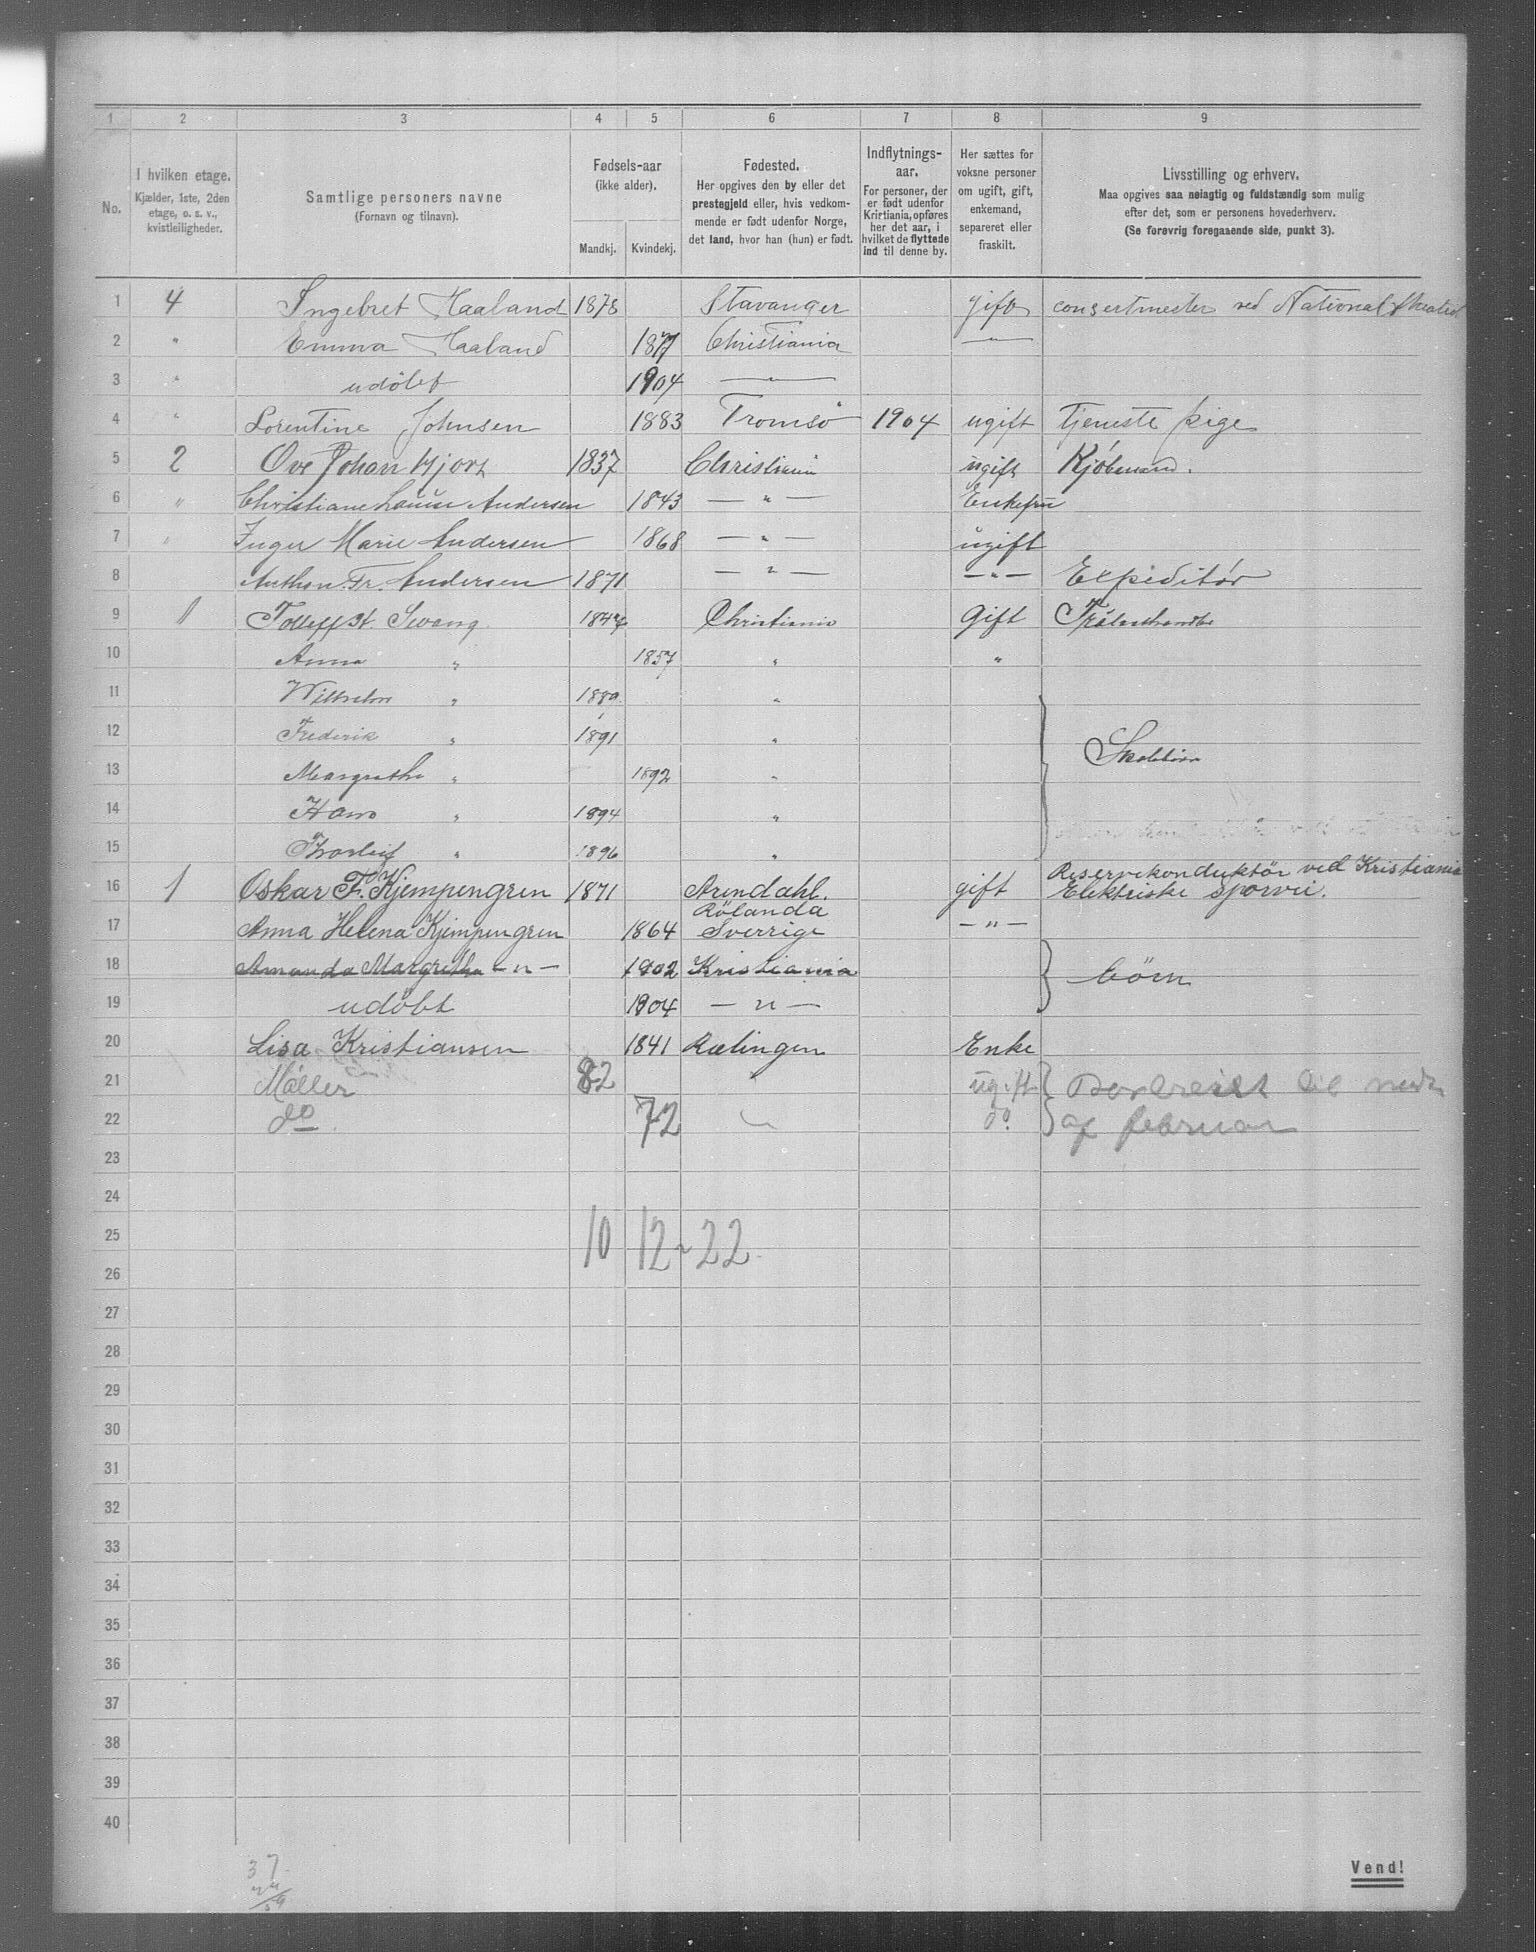 1 2 3 4 5 6 7 8 9
No.
I hvilken etage.
Kjælder, 1ste, 2den
etage, o. s. v.,
kvistleiligheder.
Samtlige personers navne
(Fornavn og tilnavn).
Fødsels-aar
(ikke alder).
Mandkj. Kvindekj.
Fødested.
Her opgives den by eller det
prestegjeld eller, hvis vedkom-
mende er født udenfor Norge,
det land, hvor han (hun) er født.
Indflytnings-
aar.
For personer, der
er født udenfor
Kristiania, opføres
her det aar, i
hvilket de flyttede
ind til denne by.
Her sættes for
voksne personer
om ugift, gift,
enkemand,
separeret eller
fraskilt.
Livsstilling og erhverv.
Maa opgives saa nøiagtig og fuldstændig som mulig
efter det, som er personens hovederhverv.
(Se forøvrig foregaaende side, punkt 3).
1 4 Ingebret Haaland 1878 Stavanger gift consertmester ved National theatret
2 " Emma Haaland 1877 Christiania — " —
3 " udøbt 1904 — " —
4 " Lorentine Johnsen 1883 Tromsö 1904 ugift Tjeneste pige
5 2 Ove Johan Hjort 1837 Christiania ugift Kjøbmand.
6 " Christiane Andersen 1843 — " — Enkefru
7 " Inger Marie Andersen 1868 — " — ugift
8 Anthon Fr. Andersen 1871 — " — — " — Expeditör
9 1 St. Swang 1847 Christiania Gift
10 Anna " 1857 " "
11 Wilhelm " 1889 "
12 Frederik " 1891 "
13 Margrethe " 1892 " Skolebörn
14 Hans " 1894 "
15 Thorleif " 1896 "
16 1 Oskar F. Kjempengren 1871 Arendahl. gift Reservekonduktör ved Kristiania
Elektriske sporvei.
17 Anna Helena Kjempengren 1864 Rölanda
Sverrige — " —
18 Amanda Margretha — " — 1902 Kristiania börn
19 udöbt 1904 — " —
20 Lisa Kristiansen 1841 Rælingen Enke
21 Möller 82 ugift Bortreist til midten
22 do 72 do. af februar
23
24
25 10 12 - 22
26
27
28
29
30
31
32
33
34
35
36
37
38
39
40
37
Vend!